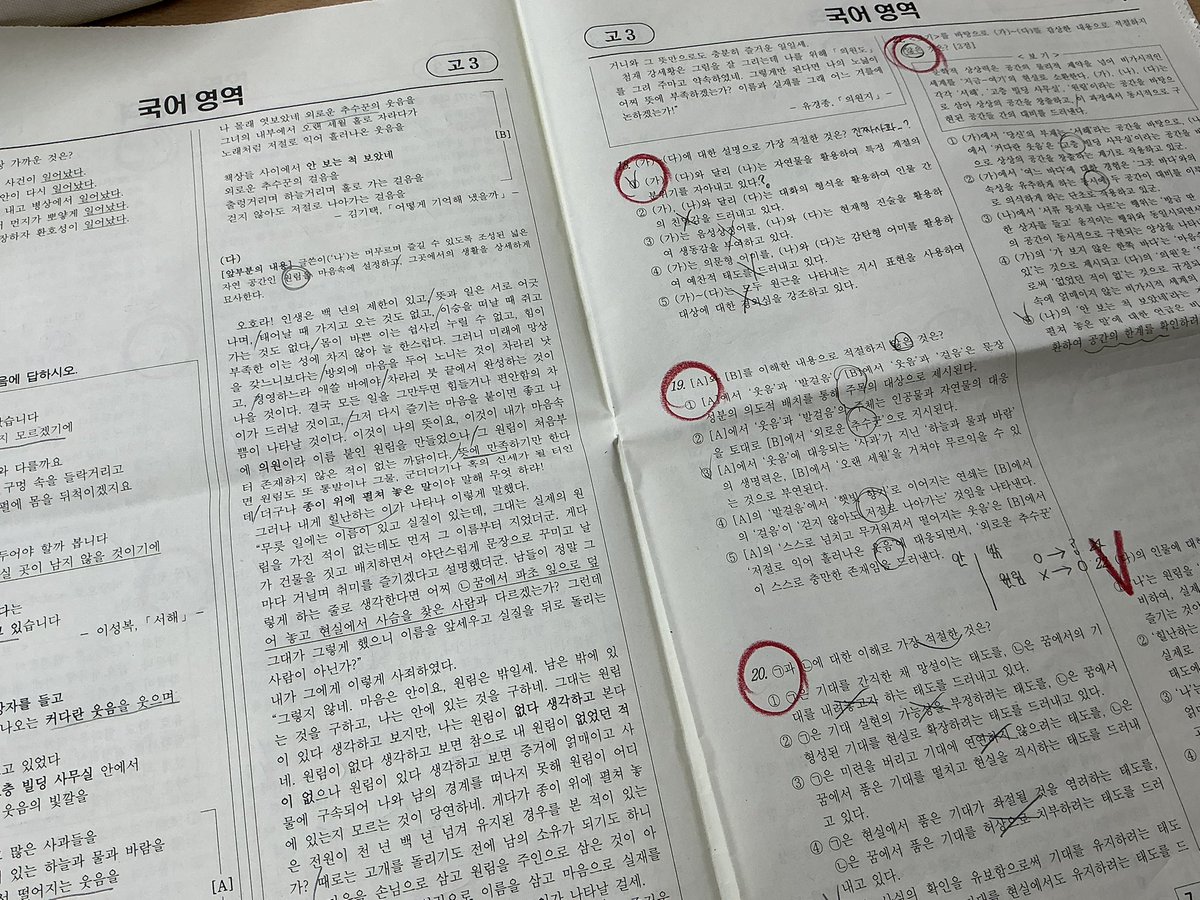 고 3
국어 영역
가까운 것은?
사건이 일어났다.
안이 다시 일어났다.
내고 병상에서 일어났다.
먼지가 뽀얗게 일어났다.
장하자 환호성이 일어났다.
음에 답하시오.
습니다
지 모르겠기에
와 다를까요
구멍 속을 들락거리고
펄에 몸을 뒤척이겠지요
두어야 할까 봅니다
실 곳이 남지 않을 것이기에
다는
고 있습니다
- 이성복, 「서해」 -
상자를 들고
나오는 커다란 웃음을 웃으며
고 있었다
고층 빌딩 사무실 안에서
웃음의 빛깔을
많은 사과들을
있는 하늘과 물과 바람을
떨어지는 웃음을
[A]
나 몰래 엿보았네 외로운 추수꾼의 웃음을
그녀의 내부에서 오랜 세월 홀로 자라다가
노래처럼 저절로 익어 흘러나온 웃음을
[B]
책상들 사이에서 안 보는 척 보았네
외로운 추수꾼의 걸음을
출렁거리며 하늘거리며 홀로 가는 걸음을
걷지 않아도 저절로 나아가는 걸음을
- 김기택, 「어떻게 기억해 냈을까」 -
(다)
[앞부분의 내용] 글쓴이('나')는 머무르며 즐길 수 있도록 조성된 넓은
자연 공간인 원림을 마음속에 설정하고, 그곳에서의 생활을 상세하게
묘사한다.
오호라! 인생은 백 년의 제한이 있고, 뜻과 일은 서로 어긋
나며, 태어날 때 가지고 오는 것도 없고, 이승을 떠날 때 쥐고
가는 것도 없다. 몸이 바쁜 이는 쉽사리 누릴 수 없고, 힘이
부족한 이는 성에 차지 않아 늘 한스럽다. 그러니 미래에 망상
을 갖느니보다는 방외에 마음을 두어 노니는 것이 차라리 낫
고, 경영하느라 애쓸 바에야 차라리 붓 끝에서 완성하는 것이
나을 것이다. 결국 모든 일을 그만두면 힘들거나 편안함의 차
이가 드러날 것이고, 그저 다시 즐기는 마음을 붙이면 좋고 나
쁨이 나타날 것이다. 이것이 나의 뜻이요, 이것이 내가 마음속
에 의원이라 이름 붙인 원림을 만들었으나 그 원림이 처음부
터 존재하지 않은 적이 없는 까닭이다. 뜻에 만족하기만 한다
면 원림도 또 통발이나 그물, 군더더기나 혹의 신세가 될 터인
데 더구나 종이 위에 펼쳐 놓은 말이야 말해 무엇 하랴!
그러나 내게 힐난하는 이가 나타나 이렇게 말했다.
"무릇 일에는 이름이 있고 실질이 있는데, 그대는 실제의 원
림을 가진 적이 없는데도 먼저 그 이름부터 지었더군. 게다
가 건물을 짓고 배치하면서 야단스럽게 문장으로 꾸미고 날
마다 거닐며 취미를 즐기겠다고 설명했더군. 남들이 정말 그
렇게 하는 줄로 생각한다면 어찌 ㉡꿈에서 파초 잎으로 덮
어 놓고 현실에서 사슴을 찾은 사람과 다르겠는가? 그런데
그대가 그렇게 했으니 이름을 앞세우고 실질을 뒤로 돌리는
사람이 아닌가?"
내가 그에게 이렇게 사죄하였다.
"그렇지 않네. 마음은 안이요, 원림은 밖일세. 남은 밖에 있
는 것을 구하고, 나는 안에 있는 것을 구하네. 그대는 원림
이 있다 생각하고 보지만, 나는 원림이 없다 생각하고 본다
네. 원림이 없다 생각하고 보면 참으로 내 원림이 없었던 적
이 없으나 원림이 있다 생각하고 보면 증거에 얽매이고 사
물에 구속되어 나와 남의 경계를 떠나지 못해 원림이 어디
에 있는지 모르는 것이 당연하네. 게다가 종이 위에 펼쳐 놓
은 전원이 천 년 백 년 넘겨 유지된 경우를 본 적이 있는
가? 때로는 고개를 돌리기도 전에 남의 소유가 되기도 하니
을 손님으로 삼고 원림을 주인으로 삼은 것이 아
이름을 삼고 마음으로 실재를
이 나타날 걸세.
고 3
국어 영역
거니와 그 뜻만으로도 충분히 즐거운 일일세.
첨재 강세황은 그림을 잘 그리는데 나를 위해 「의원도」
를 그려 주마고 약속하였네. 그렇게만 된다면 나의 노닒이
어찌 뜻에 부족하겠는가? 이름과 실재를 그래 어느 겨를에
논하겠는가!"
- 유경종, 「의원지」 -
18. (가)~(다)에 대한 설명으로 가장 적절한 것은? 진짜사과..?
① (가)는 (나)와 달리 (나)는 자연물을 활용하여 특정 계절의
분위기를 자아내고 있다.
② (가), (나)와 달리 (다)는 대화의 형식을 활용하여 인물 간
의 친밀감을 드러내고 있다.
③ (가)는 음성상징어를, (나)와 (다)는 현재형 진술을 활용하
여 생동감을 부여하고 있다.
④ (가)는 의문형 어미를, (나)와 (다)는 감탄형 어미를 활용하
여 예찬적 태도를 드러내고 있다.
⑤ (가)~(다)는 모두 원근을 나타내는 지시 표현을 사용하여
대상에 대한 경외심을 강조하고 있다.
19. [A]와 [B]를 이해한 내용으로 적절하지 않은 것은?
① [A]에서 '웃음'과 '발걸음', [B]에서 '웃음'과 '걸음'은 문장
성분의 의도적 배치를 통해 주목의 대상으로 제시된다.
② [A]에서 '웃음'과 '발걸음'의 주체는 인공물과 자연물의 대응
을 토대로 [B]에서 '외로운 추수꾼'으로 지시된다.
③ [A]에서 '웃음'에 대응되는 '사과가 지닌 '하늘과 물과 바람'
의 생명력은, [B]에서 '오랜 세월'을 거쳐야 무르익을 수 있
는 것으로 부연된다.
④ [A]의 '발걸음'에서 '햇빛 향기'로 이어지는 연쇄는 [B]에서
의 '걸음'이 '걷지 않아도 저절로 나아가는' 것임을 나타낸다.
⑤ [A]의 '스스로 넘치고 무거워져서 떨어지는 웃음'은 [B]에서
'저절로 익어 흘러나온 웃음'에 대응되면서, '외로운 추수꾼'
이 스스로 충만한 존재임을 드러낸다.
안 밖
원림
20. ㉠과 ㉡에 대한 이해로 가장 적절한 것은?
① ㉠은 기대를 간직한 채 망설이는 태도를, ㉡은 꿈에서의 기
대를 내려놓고자 하는 태도를 드러내고 있다.
② ㉠은 기대 실현의 가능성을 부정하려는 태도를, ㉡은 꿈에서
형성된 기대를 현실로 확장하려는 태도를 드러내고 있다.
③ ㉠은 미련을 버리고 기대에 연연하지 않으려는 태도를, ㉡은
꿈에서 품은 기대를 떨치고 현실을 직시하는 태도를 드러내
고 있다.
④ ㉠은 현실에서 품은 기대가 좌절될 것을 염려하는 태도를,
㉡은 꿈에서 품은 기대를 허상으로 치부하려는 태도를 드러
내고 있다.
사실의 확인을 유보함으로써 기대를 유지하려는 태도
대를 현실에서도 유지하려는 태도를 드
<보기>를 바탕으로 (가)~(다)를 감상한 내용으로 적절하지
않은 것은? [3점]
< 보 기 >
문학적 상상력은 공간의 물리적 제약을 넘어 비가시적인
세계를 '지금-여기'의 현실로 소환한다. (가), (나), (다)는
각각 '서해', '고층 빌딩 사무실', '원림'이라는 공간을 바탕으
로 삼아 상상의 공간을 창출하고, 이 과정에서 동시적으로 구
현된 공간들 간의 대비를 드러낸다.